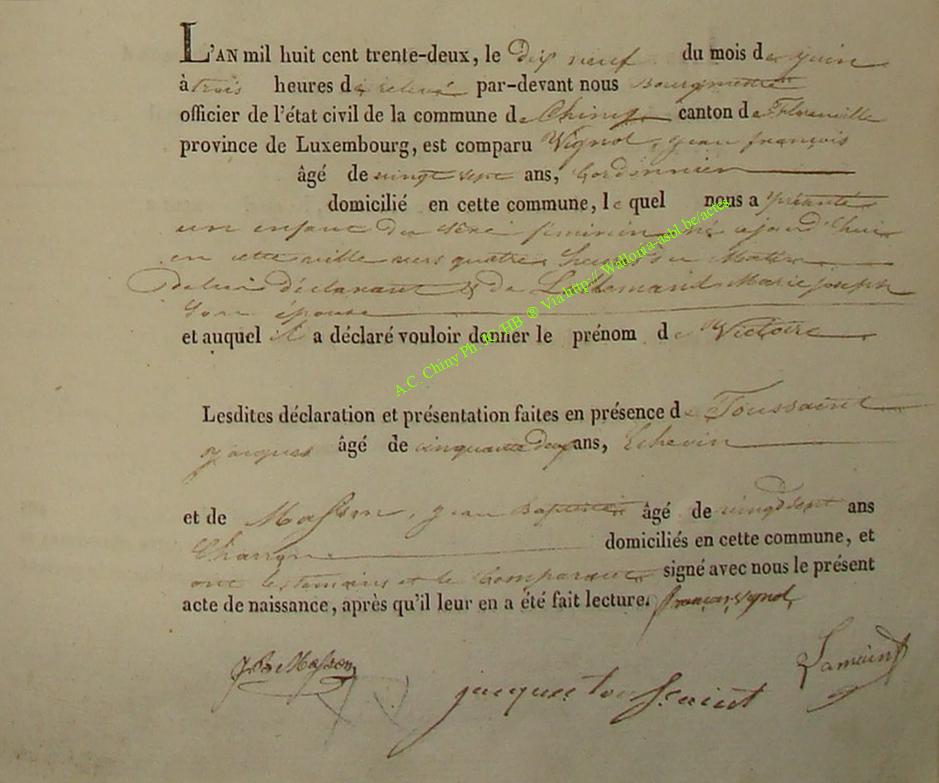 L'AN mil huit cent trente-deux, le Dix neuf du mois de juin
à trois heures de relevé par-devant nous Bourgmestre
officier de l'état civil de la commune de Chiny canton de Florenville
province de Luxembourg, est comparu Vignol, jean françois
âgé de vingt sept ans, Cordonnier
domicilié en cette commune, le quel nous a présenté
un enfant du sexe féminin né ajourd'huis
en cette ville vers quatre heures du Matin
de lui déclarant & de Marie joseph
son épouse
et auquel il a déclaré vouloir donner le prénom de Victoire
Lesdites déclaration et présentation faites en présence de Toussaint
jacques âgé de cinquante deux ans, Echevin
et de Masson, jean Baptiste âgé de vingt sept ans
domiciliés en cette commune, et
ont les temoins et le Comparant signé avec nous le présent
acte de naissance, après qu'il leur en a été fait lecture. françois vignol
JB Masson
jacques toussaint
A.C. Chiny Ph. JC HB ® Via http:// Wallonia-asbl.be/actes